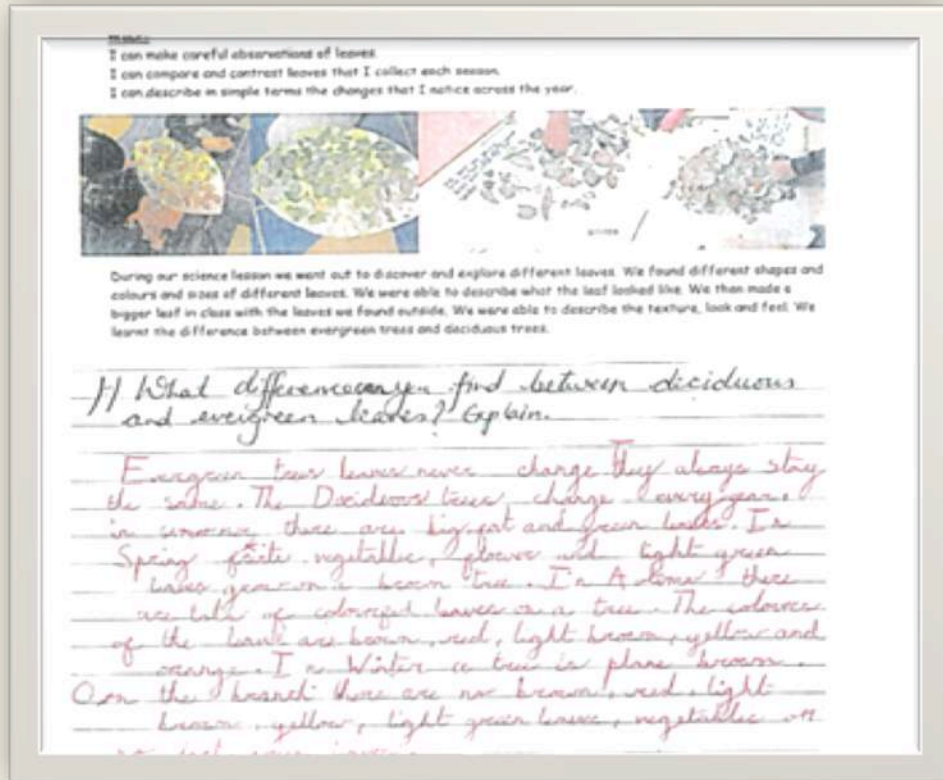 I can make careful observations of leaves.
I can compare and contrast leaves that I collect each season.
I can describe in simple terms the changes that I notice across the year.
During our science lesson we went out to discover and explore different leaves. We found different shapes and
colours and sizes of different leaves. We were able to describe what the leaf looked like. We then made a
bigger leaf in class with the leaves we found outside. We were able to describe the texture, look and feel. We
learnt the difference between evergreen trees and deciduous trees.
1) What difference can you find between deciduous
and evergreen leaves? Explain.
Evergreen trees leaves never change they always stay
the same. The Deciduous trees change every year.
in there are big fat and green leaves. In
Spring vegetable, flower and light green
leaves on a brown tree. In there
are lots of colourful leaves on a tree. The colours
of the are brown, red, light brown, yellow and
orange. In Winter a tree is plane brown.
On the branch there are no brown, red, light
brown, yellow, light green leaves, vegetables or